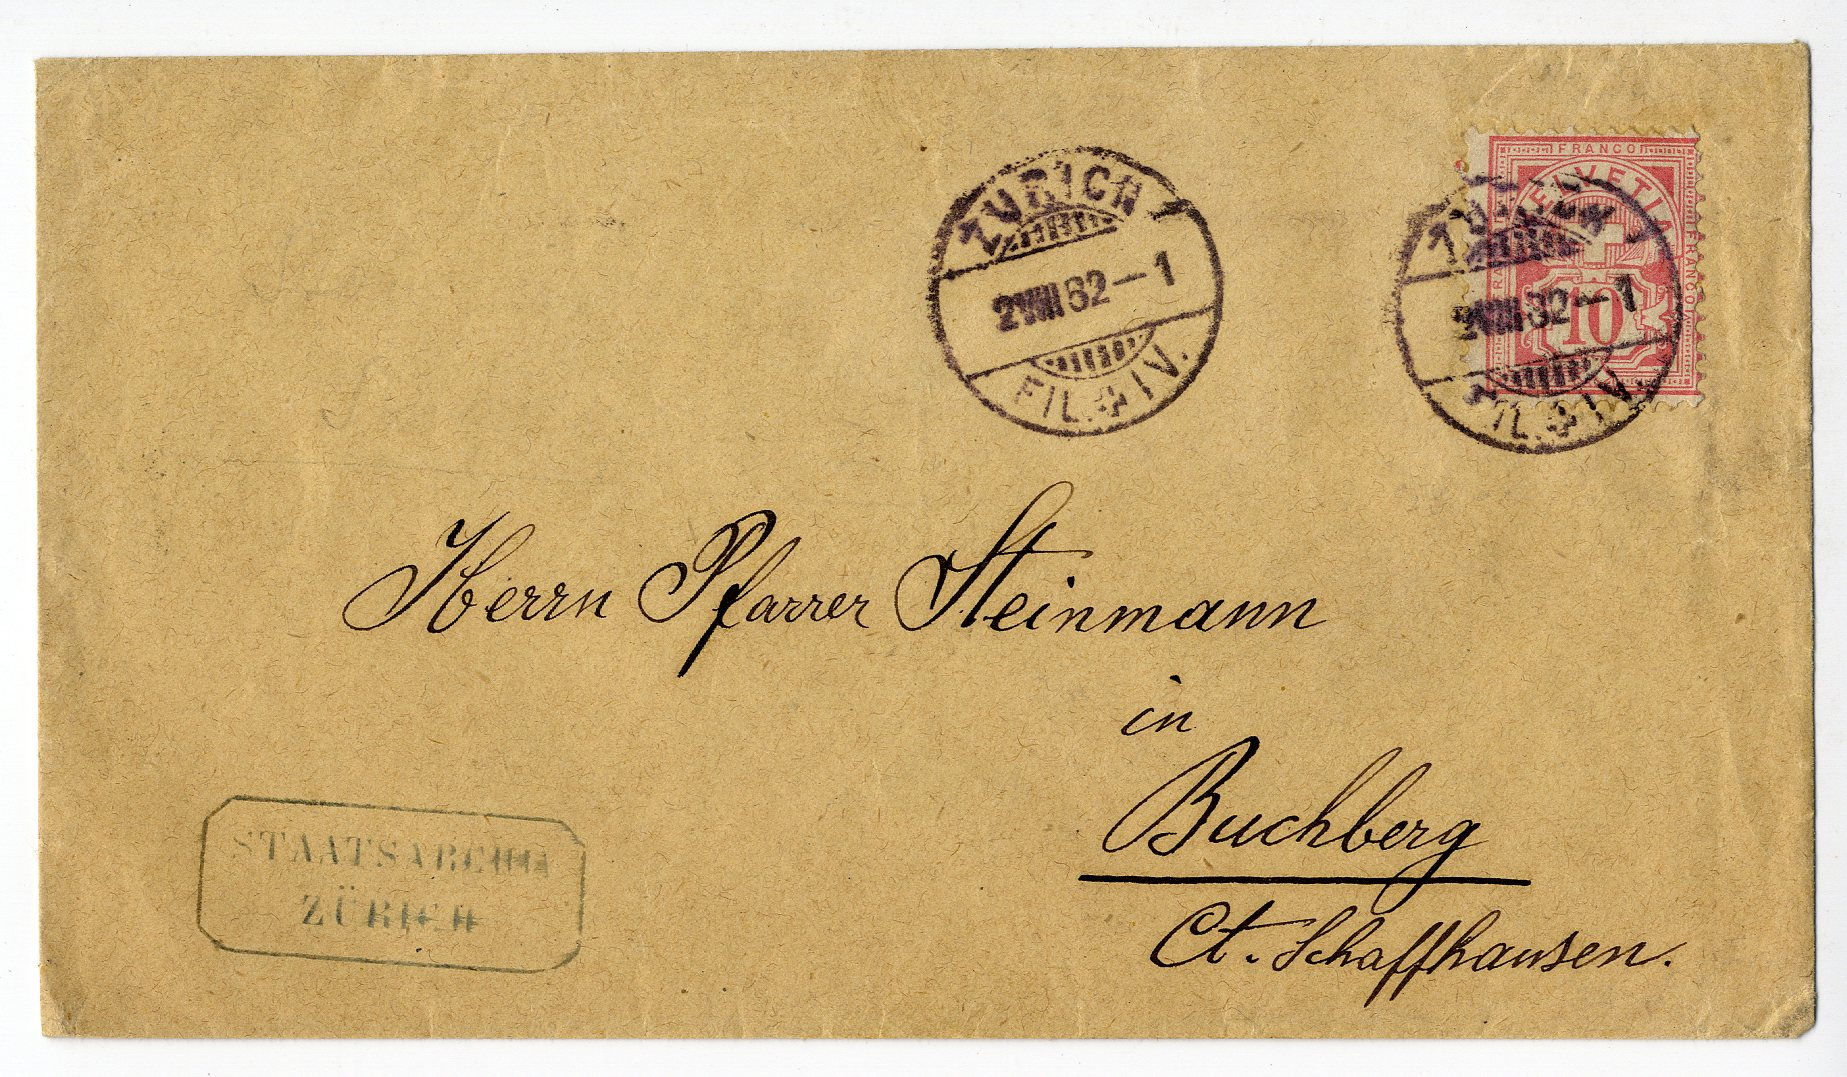 ZÜRICH
82-1
FIL. IV.
FRANCO
HELVETIA
FRANCO
10
ZÜRICH
82-1
FIL. IV.
Herrn Pfarrer Steinmann
in
Buchberg
Ct. Schaffhausen.
STAATSARCHIV
ZÜRICH